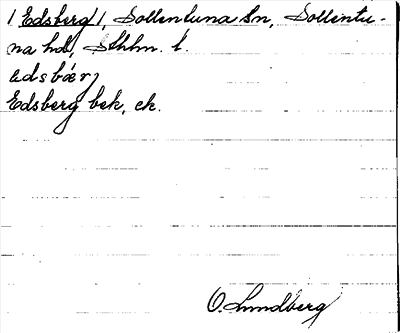 / Edsberg /, Sollentuna Sn, Sollentu-
na hd, Sthlm. l.
edsbær,
Edsberg bek, ek.
O. Lundberg